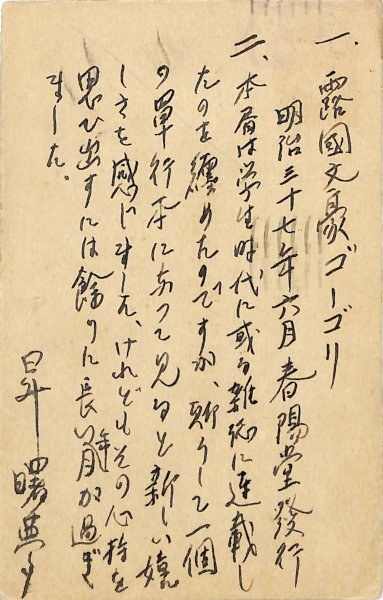 一、露國文豪ゴーゴリ
明治三十七年六月春陽堂發行
二、本書は学生時代に或る雜誌に連載し
たのを纏めたのですが、斯うして一個
の單行本になつて見ると新しい嬉
しさを感じました、けれどもその心持を
思ひ出すには餘りに長い年月が過ぎ
ました。
昇曙夢